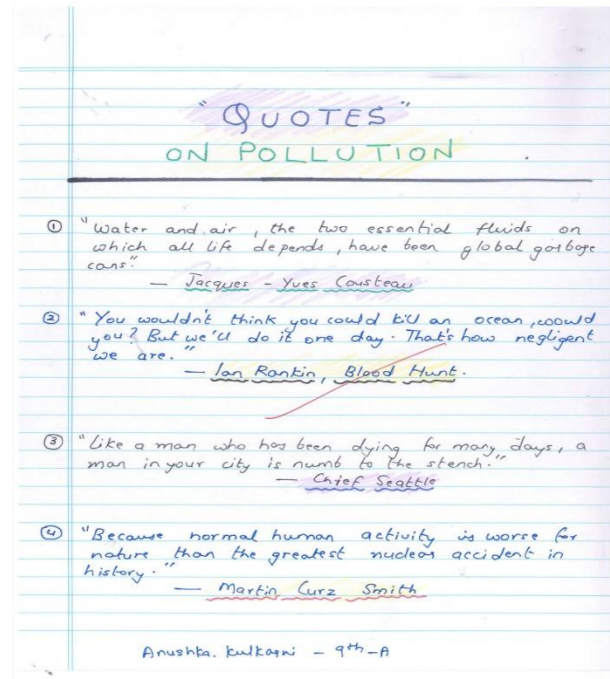 "QUOTES"
ON POLLUTION
① "Water and air, the two essential fluids on
which all life depends, have been global garbage
cans."
— Jacques - Yves Cousteau
② "You wouldn't think you could kill an ocean, would
you? But we'll do it one day. That's how negligent
we are."
— Ian Rankin, Blood Hunt.
③ "Like a man who has been dying for many days, a
man in your city is numb to the stench."
— Chief Seattle
④ "Because normal human activity is worse for
nature than the greatest nuclear accident in
history."
— Martin Curz Smith
Anushka. Kulkarni - 9th-A